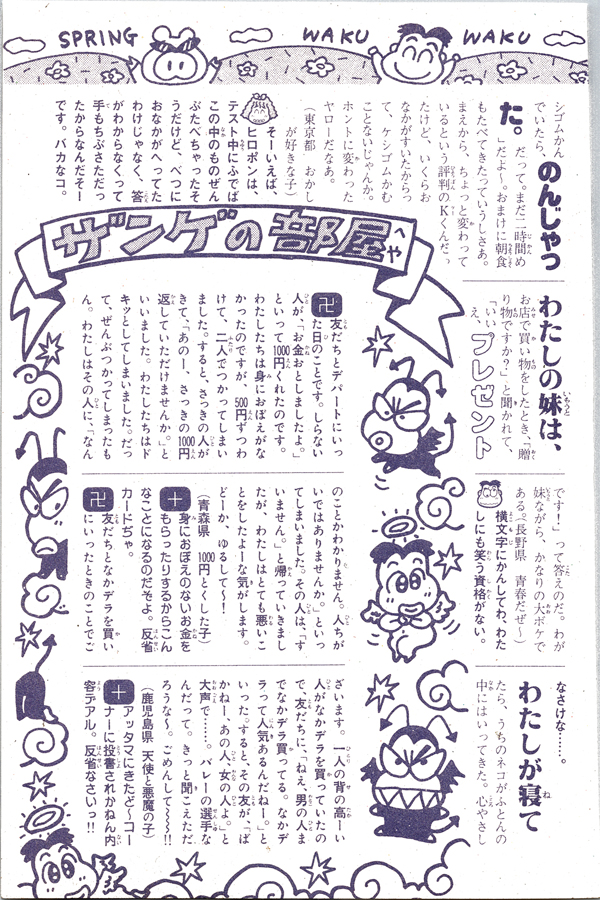 SPRING WAKU WAKU
シゴムかん
でいたら、のんじゃっ
た。」だって。まだ二時間め
だよ〜。おまけに朝食
もたべてきたっていうしさあ。
まえから、ちょっと変わって
いるという評判のKくんだっ
たけど、いくらお
なかがすいたからっ
て、ケシゴムかむ
ことないじゃんか。
ホントに変わった
ヤローだなあ。
(東京都 おかし
が好きな子)
そーいえば、
ヒロポンは、
テスト中にふでば
この中のものぜん
ぶたべちゃったそ
うだけど、べつに
おなかがへってた
わけじゃなく、答
がわからなくって
手もちぶさただっ
たからなんだそー
です。バカなコ。
わたしの妹は、
お店で買い物をしたとき、「贈
り物ですか?」と聞かれて、
「いいえ、プレゼント
です!」って答えのだ。わが
妹ながら、かなりの大ボケで
ある。(長野県 青春だぜ〜)
横文字にかんしてわ、わた
しにも笑う資格がない。
なさけな……。
わたしが寝て
たら、うちのネコがふとんの
中にはいってきた。心やさし
ザンゲの部屋
卍友だちとデパートにいっ
た日のことです。しらない
人が、「お金おとしましたよ。」
といって1000円くれたのです。
わたしたちは身におぼえがな
かったのですが、500円ずつわ
けて、二人でつかってしまい
ました。すると、さっきの人が
きて、「あのー、さっきの1000円
返していただけませんか。」と
いいました。わたしたちはド
キッとしてしまいました。だっ
て、ぜんぶつかってしまったも
ん。わたしはその人に、「なん
のことかわかりません。人ちが
いではありませんか。」といっ
てしまいました。その人は、「す
いません。」と帰っていきまし
たが、わたしはとても悪いこ
とをしたよーな気がします。
どーか、ゆるして!!
(青森県 1000円とくした子)
十身におぼえのないお金を
もらったりするからこん
なことになるのだぞよ。反省
カードぢゃ。
卍友だちとなかデラを買い
にいったときのことでご
ざいます。一人の背の高ーい
人がなかデラを買っていたの
で、友だちに、「ねえ、男の人ま
でなかデラ買ってる。なかデ
ラって人気あるんだねー。」と
いった。すると、その友が、「ば
かねー、あの人、女の人よ。」と
大声で……。バレーの選手な
んだって。きっと聞こえただ
ろうな〜。ごめんして〜〜!!
(鹿児島県 天使と悪魔の子)
十アッタマにきたど〜コー
ナーに投書されかねん内
容デアル。反省なさいっ!!